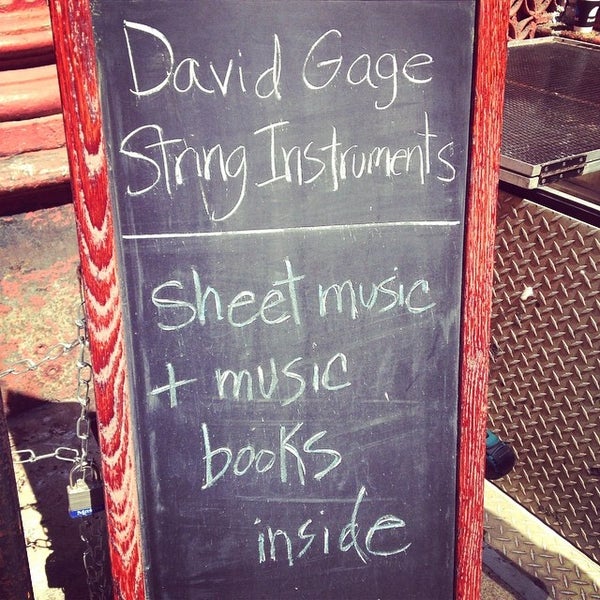 David Gage
String Instruments
sheet music
+ music
books
inside